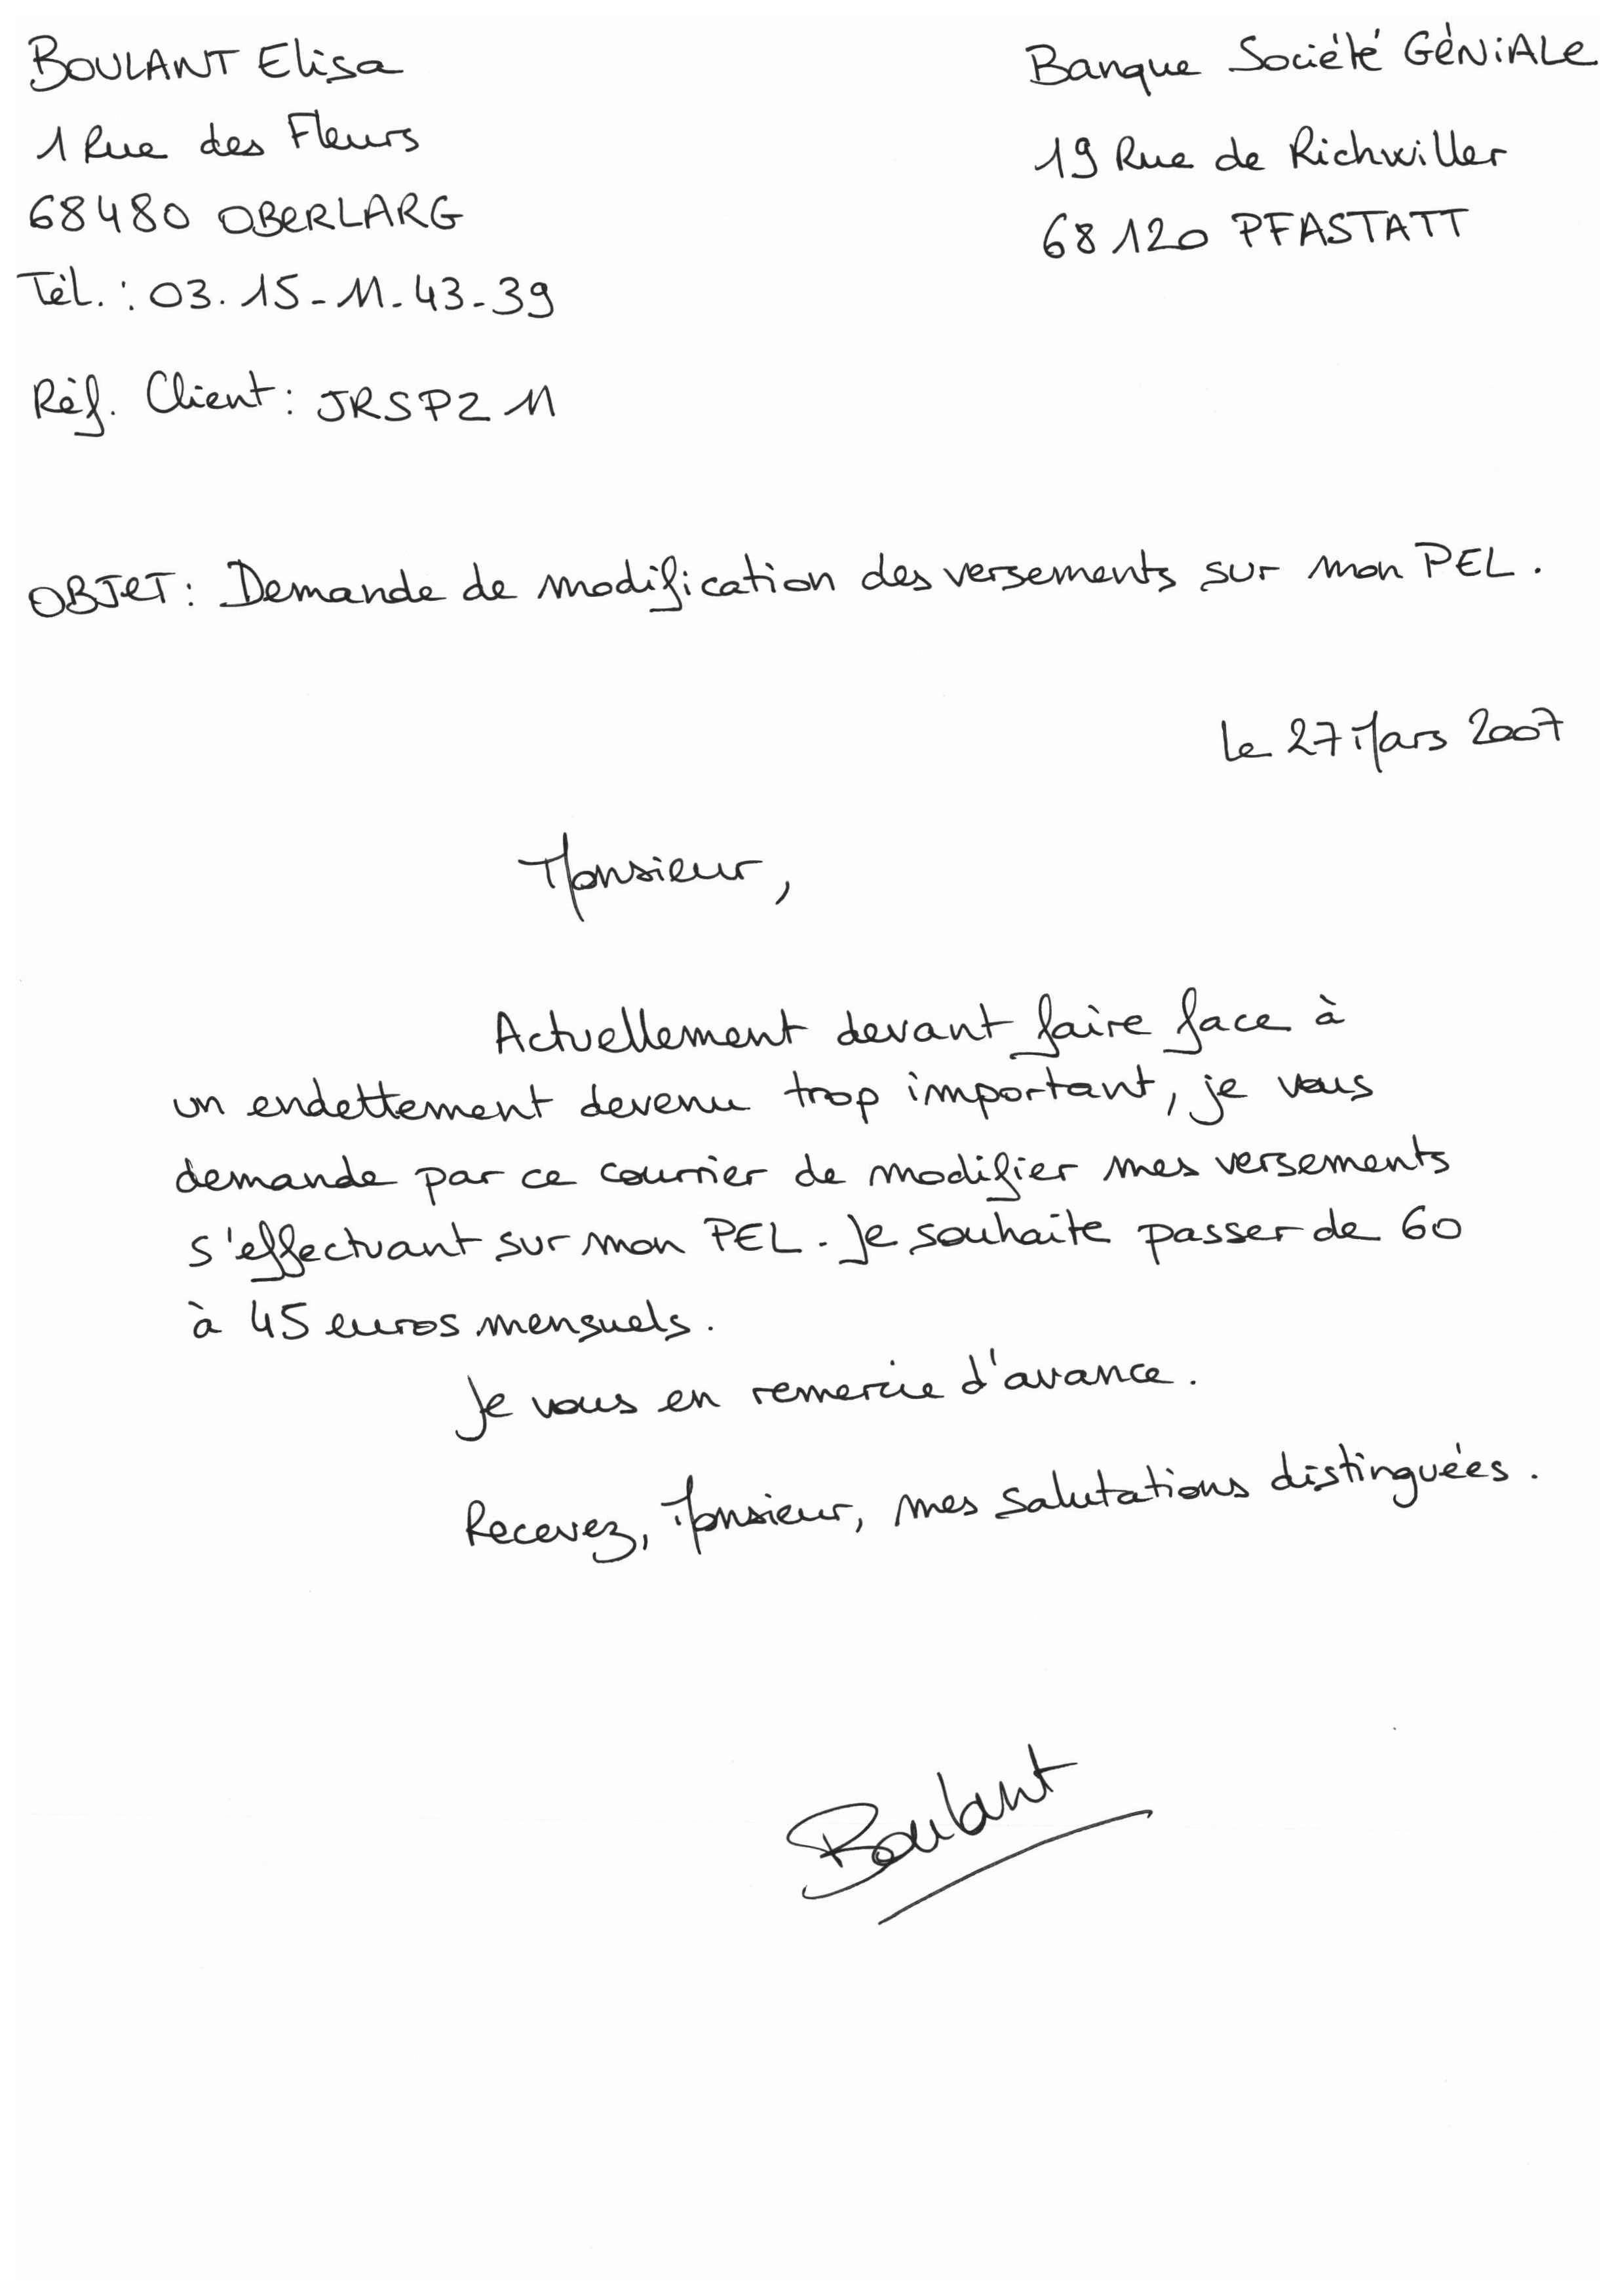 BOULANT Elisa
1 Rue des Fleurs
68480 OBERLARG
Tél. : 03.15-11-43-39
Réf. Client : JRSP211
Banque Société GÉNIALE
19 Rue de Richwiller
68120 PFASTATT
OBJET : Demande de modification des versements sur mon PEL.
Le 27 Mars 2007
Monsieur,
Actuellement devant faire face à
un endettement devenu trop important, je vous
demande par ce courrier de modifier mes versements
s'effectuant sur mon PEL. Je souhaite passer de 60
à 45 euros mensuels.
Je vous en remercie d'avance.
Recevez, Monsieur, mes salutations distinguées.
Boulant